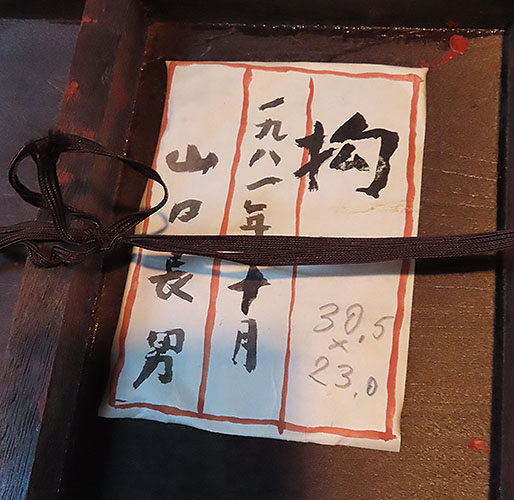 拘
一九八一年十月
山口長男
30.5
×
23.0